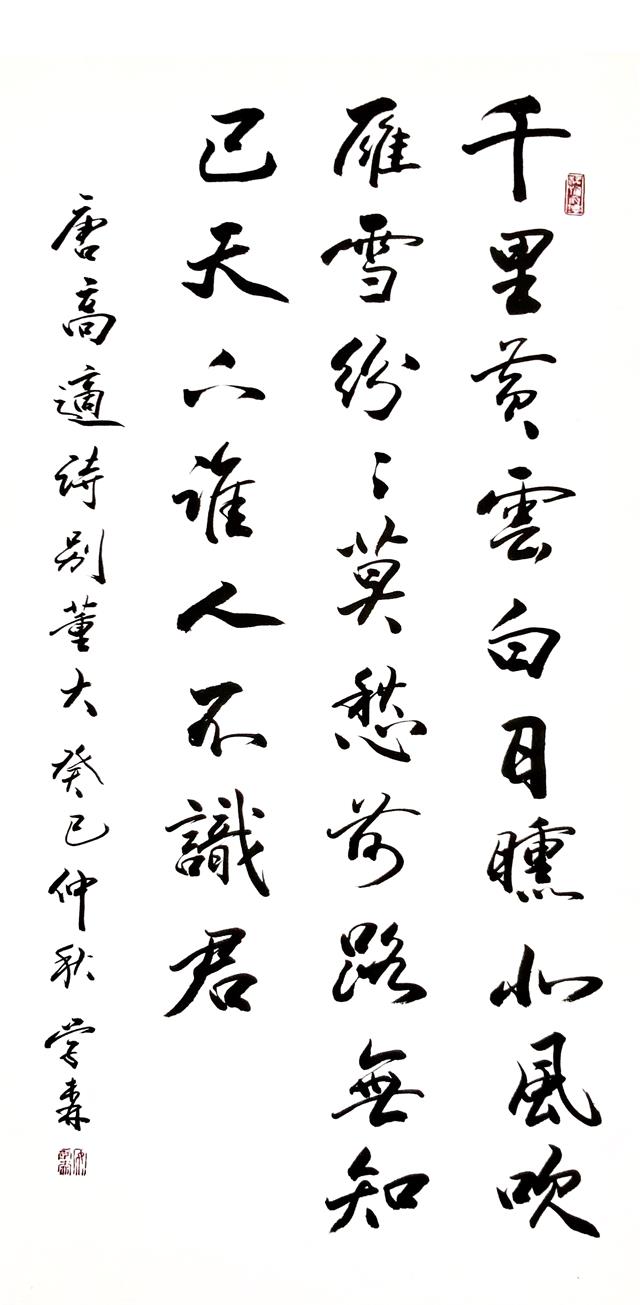 千里黄雲白日曛北風吹
雁雪紛〻莫愁前路無知
已天下誰人不識君
唐高適詩別董大癸巳仲秋學森